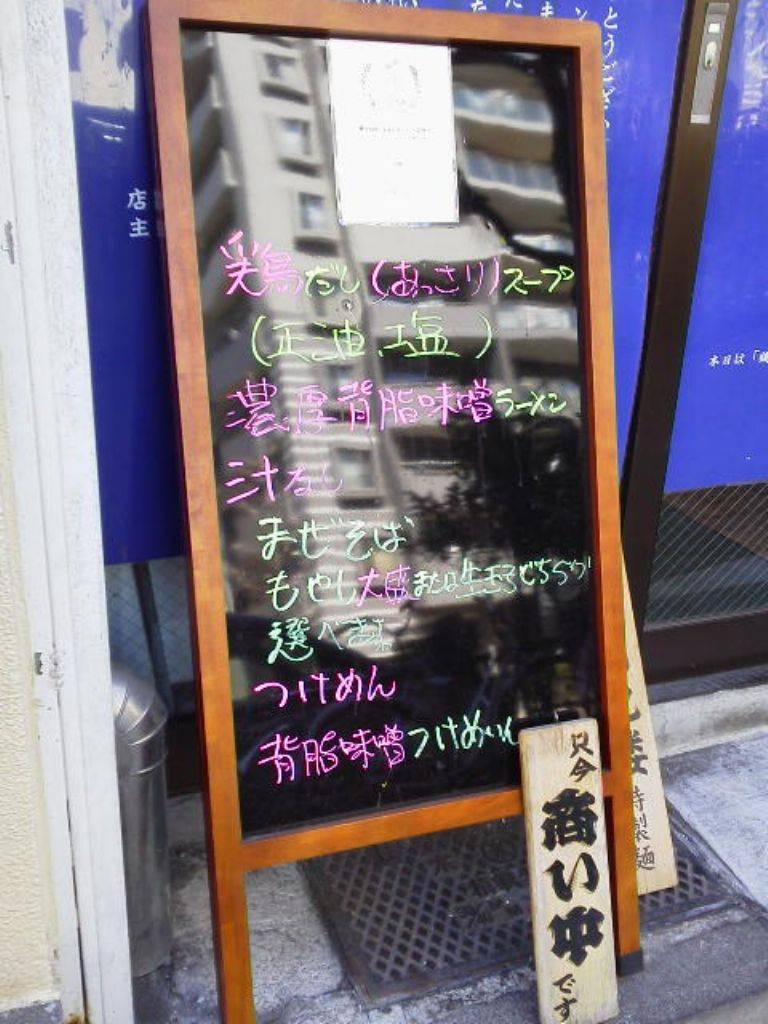 鶏だし(あっさり)スープ
(正油、塩)
濃厚背脂味噌ラーメン
汁なし
まぜそば
もやし大盛または生玉子どちらか
選べます
つけめん
背脂味噌つけめん
只今
商い中
です
特製麺
店主
本日は「